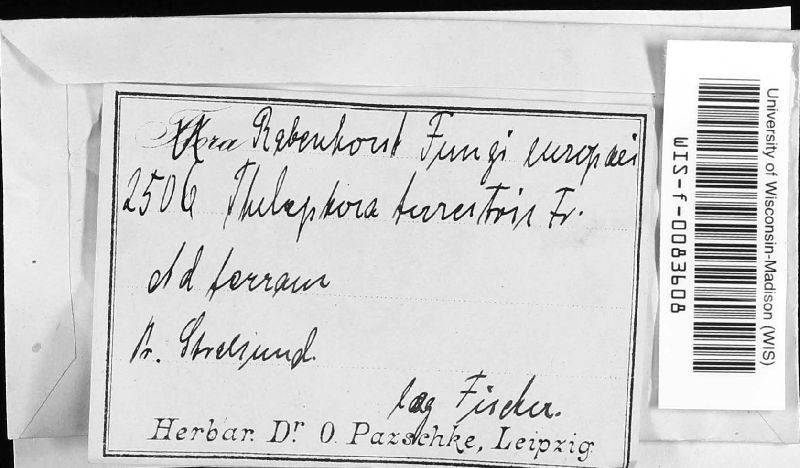 Flora Rabenhorst Fungi europaei
2506 Thelephora terrestris Fr.
Ad terram
Pr. Stralsund.
leg Fischer.
Herbar. Dr O. Pazschke, Leipzig
University of Wisconsin-Madison (WIS)
WIS-f-0083608